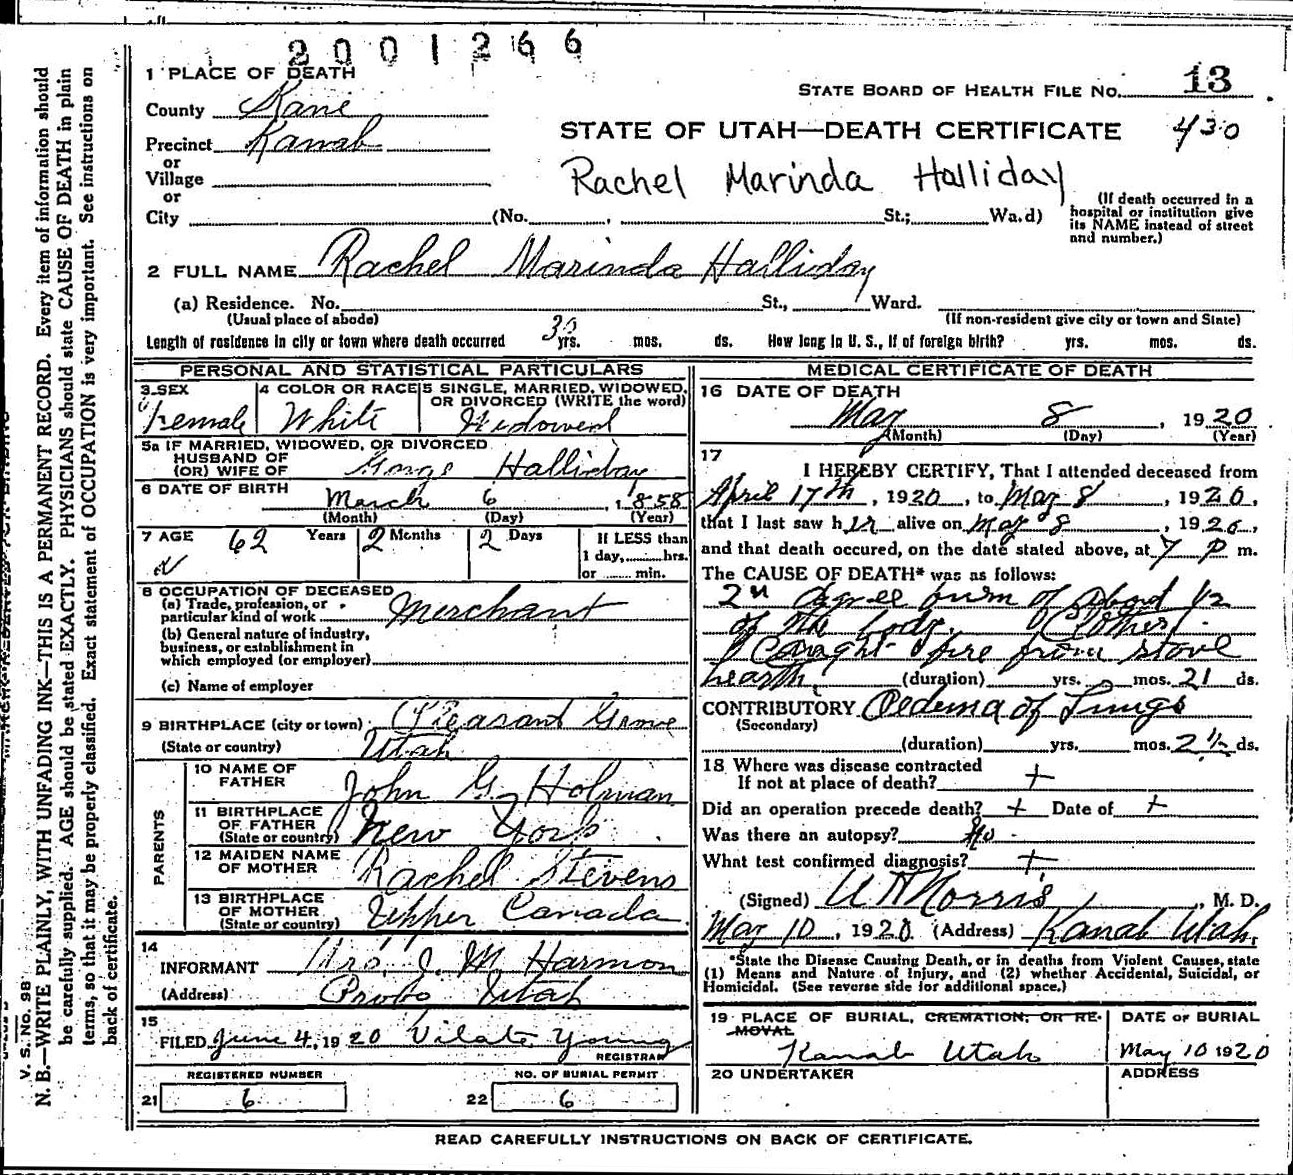 2001266
1 PLACE OF DEATH
STATE BOARD OF HEALTH FILE No. 13
County Kane
STATE OF UTAH—DEATH CERTIFICATE 430
Precinct Kanab
or
Village
Rachel Marinda Halliday
or
City (No. , St.; Wa.d)
(If death occurred in a
hospital or institution give
its NAME instead of street
and number.)
2 FULL NAME Rachel Marinda Halliday
(a) Residence. No. St., Ward.
(Usual place of abode) (If non-resident give city or town and State)
Length of residence in city or town where death occurred 30 yrs. mos. ds. How long in U. S., if of foreign birth? yrs. mos. ds.
PERSONAL AND STATISTICAL PARTICULARS
3 SEX
Female
4 COLOR OR RACE
White
5 SINGLE, MARRIED, WIDOWED,
OR DIVORCED (WRITE the word)
Widowed
5a IF MARRIED, WIDOWED, OR DIVORCED
HUSBAND OF
(OR) WIFE OF Halliday
6 DATE OF BIRTH
March 6, 1858
(Month) (Day) (Year)
7 AGE 62 Years 2 Months 2 Days
If LESS than
1 day, hrs.
or min.
8 OCCUPATION OF DECEASED
(a) Trade, profession, or
particular kind of work Merchant
(b) General nature of industry,
business, or establishment in
which employed (or employer)
(c) Name of employer
9 BIRTHPLACE (city or town) Pleasant Grove
(State or country) Utah
PARENTS
10 NAME OF
FATHER John G. Holman
11 BIRTHPLACE
OF FATHER
(State or country) New York
12 MAIDEN NAME
OF MOTHER Rachel Stevens
13 BIRTHPLACE
OF MOTHER
(State or country) Upper Canada
14
INFORMANT Mrs. J. M Harmon
(Address) Provo Utah
15
FILED June 4, 1920 Vilate Young
REGISTRAR
REGISTERED NUMBER
21 6
NO. OF BURIAL PERMIT
22 6
MEDICAL CERTIFICATE OF DEATH
16 DATE OF DEATH
May 8, 1920
(Month) (Day) (Year)
17
I HEREBY CERTIFY, That I attended deceased from
April 17th, 1920, to May 8, 1920,
that I last saw her alive on May 8, 1920,
and that death occured, on the date stated above, at 7 P m.
The CAUSE OF DEATH* was as follows:
2nd degree burn of about 1/2
of the body. (Clothes
Caught fire from stove
hearth. (duration) yrs. mos. 21 ds.
CONTRIBUTORY Oedema of Lungs
(Secondary)
(duration) yrs. mos. 2 1/2 ds.
18 Where was disease contracted
If not at place of death? +
Did an operation precede death? + Date of +
Was there an autopsy? No
What test confirmed diagnosis? +
(Signed) Morris, M. D.
May 10, 1920 (Address) Kanab Utah.
*State the Disease Causing Death, or in deaths from Violent Causes, state
(1) Means and Nature of Injury, and (2) whether Accidental, Suicidal, or
Homicidal. (See reverse side for additional space.)
19 PLACE OF BURIAL, CREMATION, OR RE-
MOVAL
Kanab Utah
DATE OF BURIAL
May 10 1920
20 UNDERTAKER
ADDRESS
READ CAREFULLY INSTRUCTIONS ON BACK OF CERTIFICATE.
V. S. No. 98
N. B.—WRITE PLAINLY, WITH UNFADING INK—THIS IS A PERMANENT RECORD. Every item of information should
be carefully supplied. AGE should be stated EXACTLY. PHYSICIANS should state CAUSE OF DEATH in plain
terms, so that it may be properly classified. Exact statement of OCCUPATION is very important. See instructions on
back of certificate.